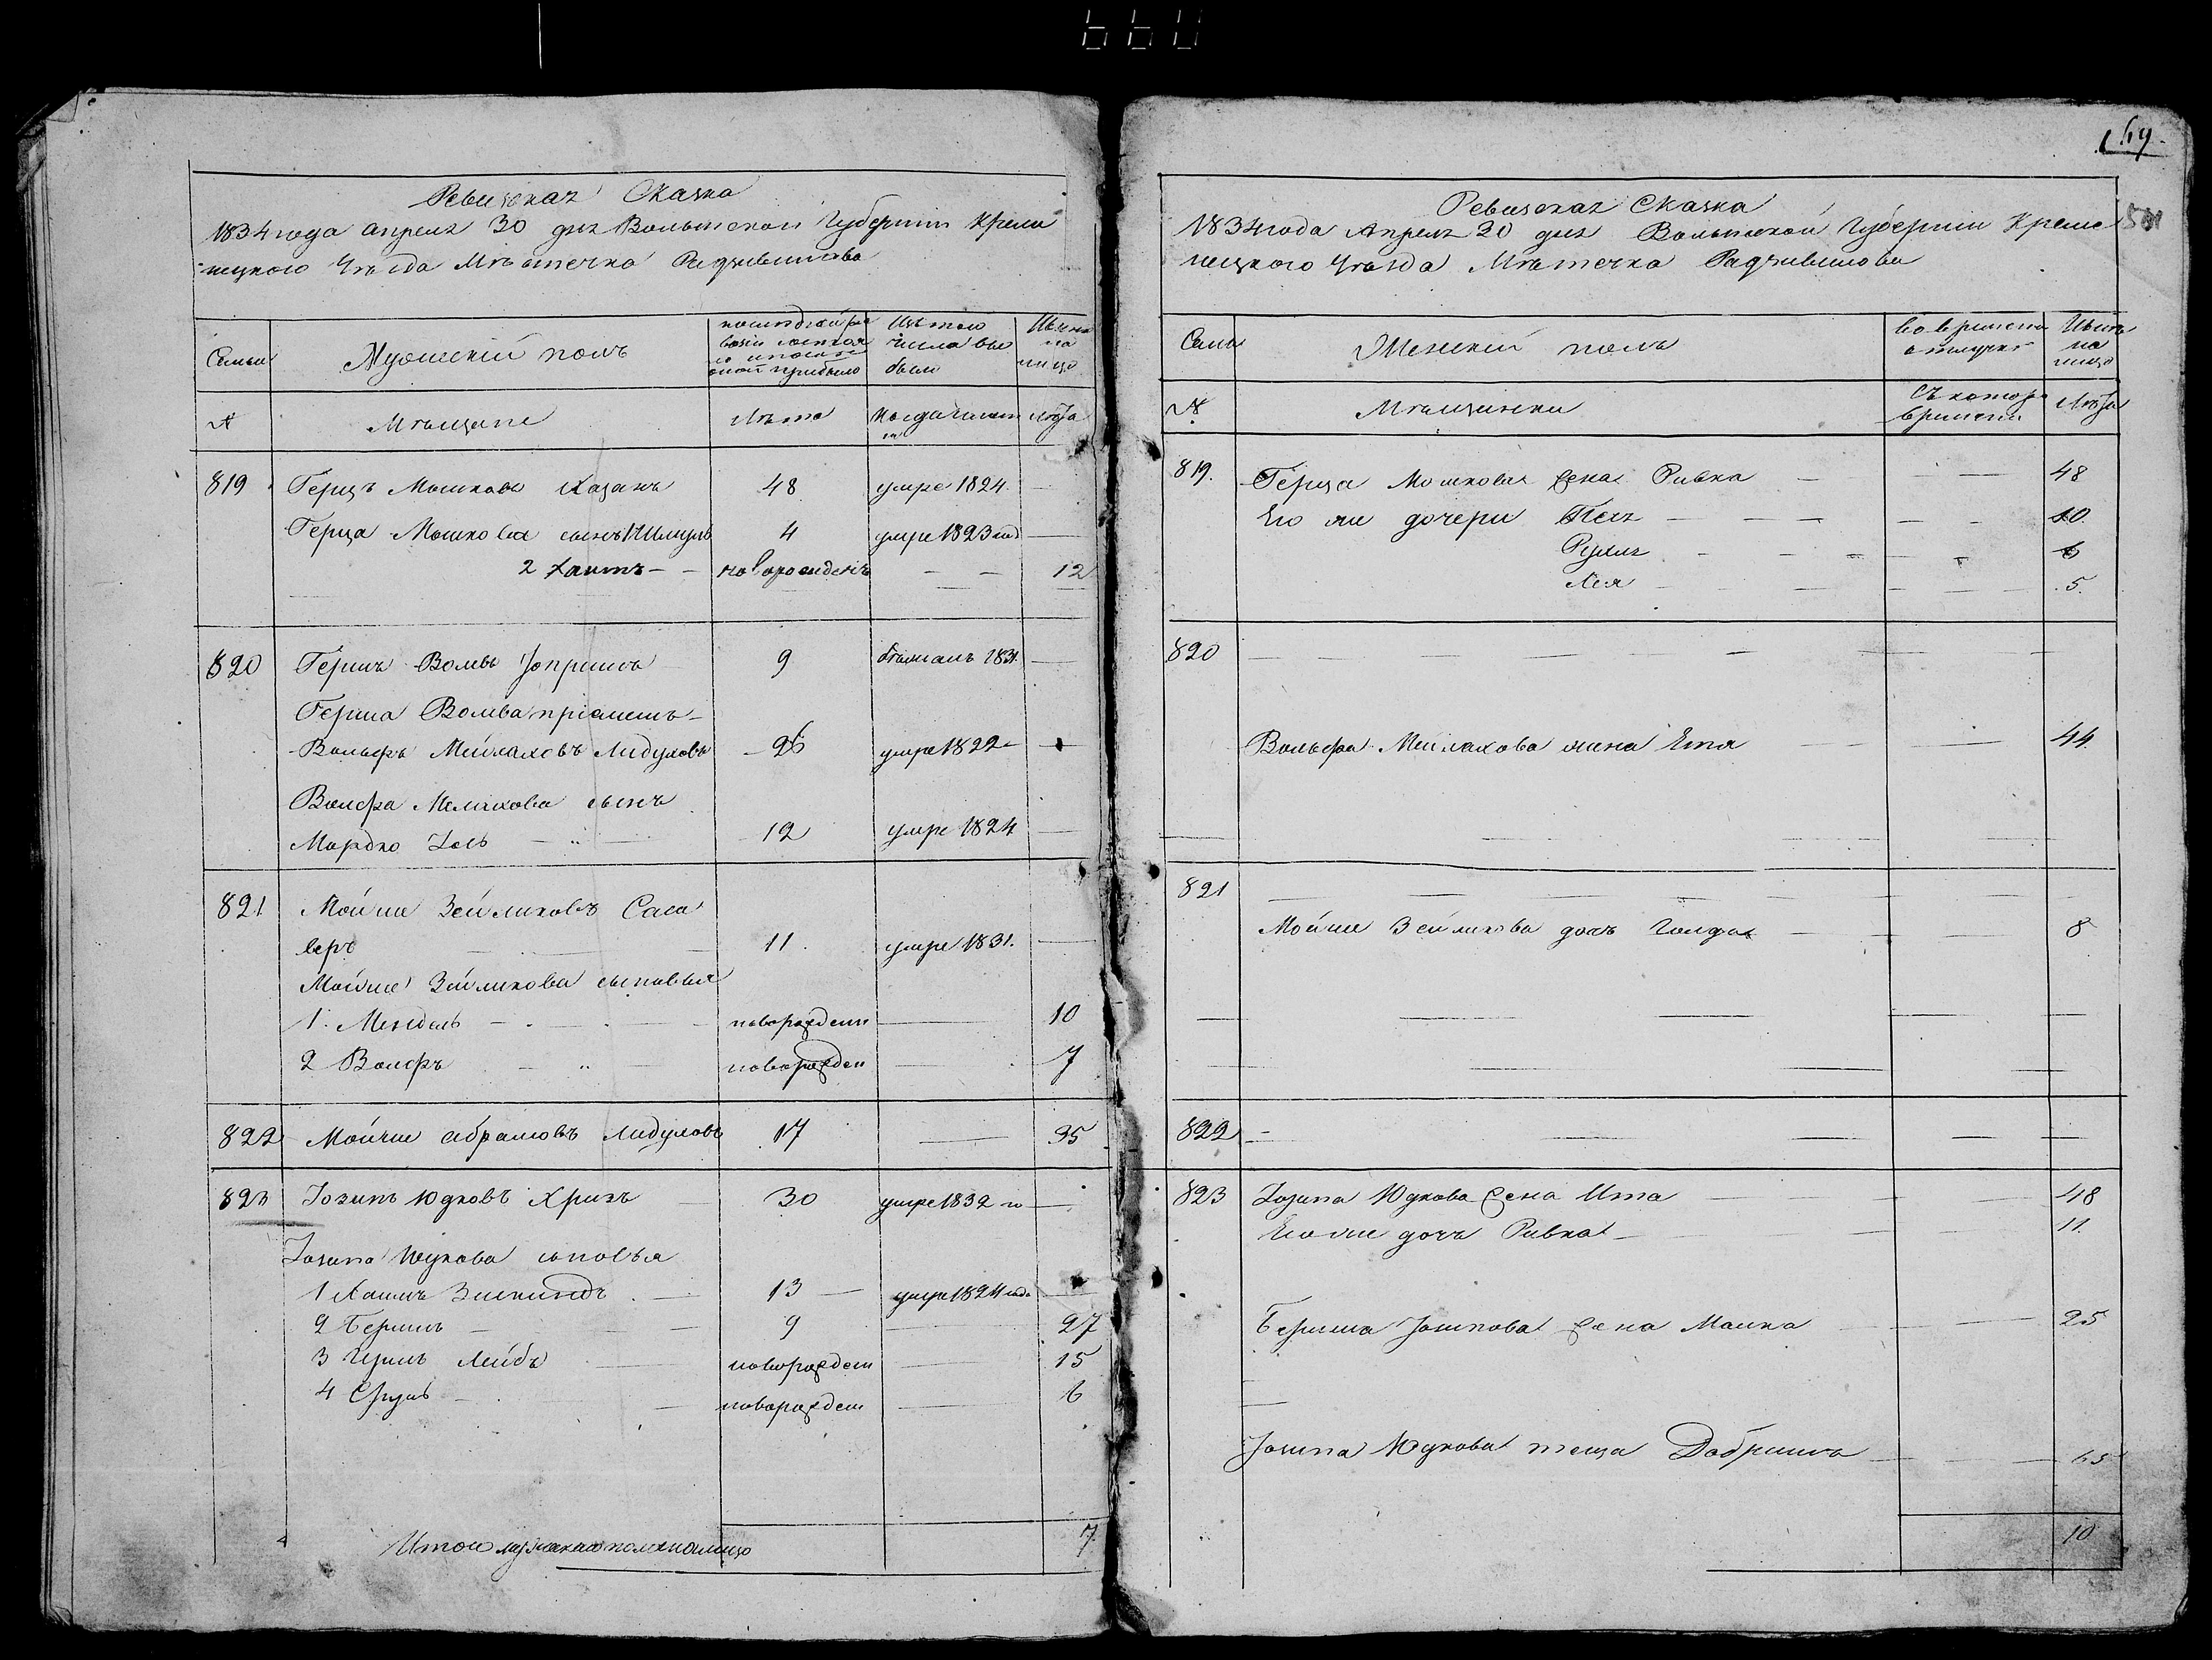 660
Ревизская Сказка
1834 года апреля 30 дня Волынской Губернии Креме
нецкого Уезда Мѣстечка Радзивилова
Семьи Мужеский полъ Изъ того числа выбыло Нынѣ на лицо
№ Мѣщане Лѣта Когда именно Лѣта
819 Герцъ Мошковъ Хазанъ 48 умре 1824
Герца Мошкова сынъ 1 Шмуль 4 умре 1823 года
2 Хаимъ новорожденъ 12
820 Гершъ Вольвъ 9 1831
Герша Вольва пріемышъ
Вольфъ Мейлаховъ Лидуховъ 26 умре 1822
Вольфа Мелахова сынъ
Мордко Іось 12 умре 1824
821 Мойше Зейликовъ Саса
веръ 11 умре 1831.
Мойше Зейликова сыновья
1. Мендель новорожден 10
2 Вольфъ новорожден 7
822 Мойше Абрамовъ Лидуховъ 17 35
823 Іозипъ Юдковъ Хризъ 30 умре 1832 го
Іозипа Юдкова сыновья
1 Хаимъ Зискиндъ 13 умре 1824 года
2 Бершъ 9 27
3 Лейбъ новорожден 15
4 Сруль новорожден 6
Итого мужеска пола на лицо 7
69
501
Ревизская Сказка
1834 года Апреля 30 дня Волынской Губерніи Креме
нецкого Уезда Мѣстечка Радзивилова
Семьи Женскій полъ Во временной отлучкѣ Нынѣ на лицо
№ Мѣщанки Съ котор времени Лѣта
819. Герца Мошкова жена Ривка 48
Его же дочери Песя 10.
Рухля 6
Лея 5.
820
Вольфа Мейлахова жена Етя 44
821
Мойше Зейликова дочь Голда 8
822
823 Іозипа Юдкова жена Ита 48
Его же дочь Ривка 11.
Берша жена Малка 25
Іозипа Юдкова теща Добриша 65
10